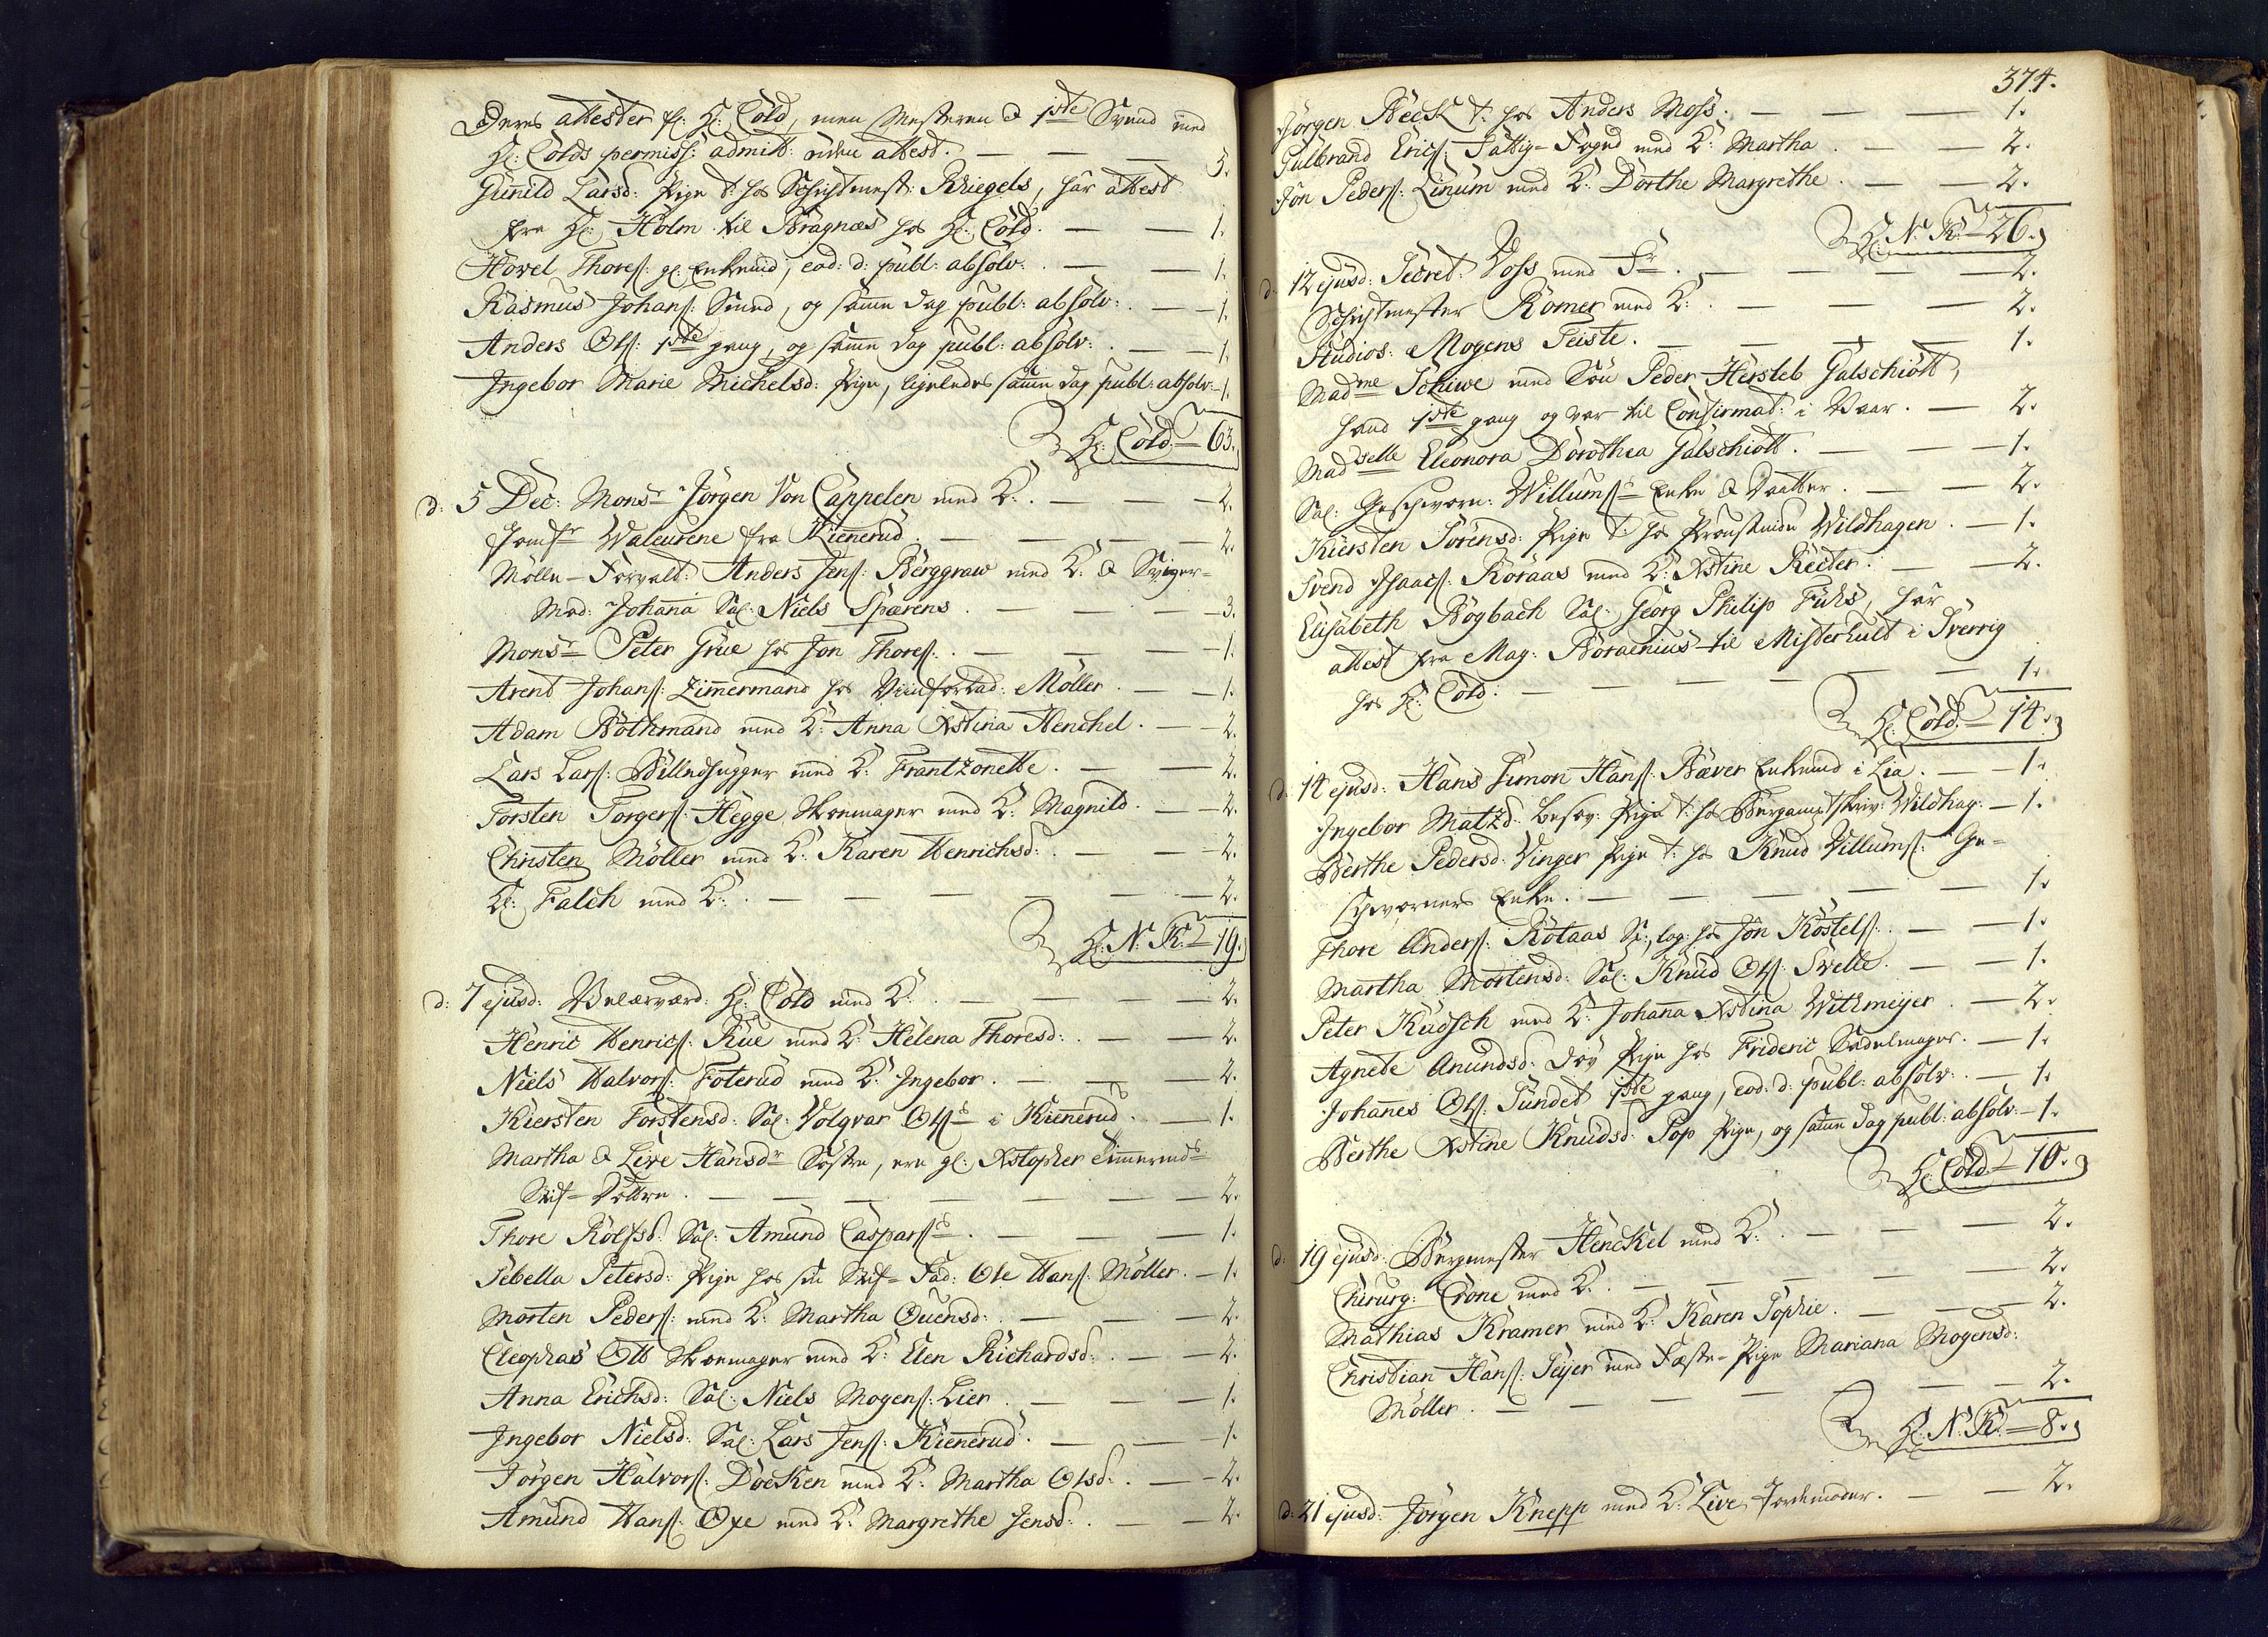 Deres attester fl: H: Cold, men Mesteren & 1ste Svend med
H: Colds permiss: admitt: uden attest. — — — 5.
Gunild Larsd: Pige t: hos Schichtmest: Kriegels, har attest
fra H: Holm til Bragnæs hos H: Cold. — — 1.
Hovel Thores: gl: Enkemd, eod: d: publ: absolv: — — 1.
Rasmus Johans: Smed, og samme dag publ: absolv: — — 1.
Anders Ols: 1ste gang, og samme dag publ: absolv: — — 1.
Ingebor Marie Michelsd: Pige, ligeledes samme dag publ: absolv: — 1.
H: Cold — 63.
d: 5 Dec: Monsr Jörgen Von Cappelen med K: — — — 2.
Jomfr Waleurene fra Kiennerud. — — — 2.
Mölle-Forvalt: Anders Jens: Berggraw med K: & Sviger-
Mod: Johanna Sal: Niels Spærens. — — — 3.
Monsr Peter Grüe hos Jon Thores: — — — 1.
Arent Johans: Zimmermand hos Möller. — — 1.
Adam Bothmand med K: Anna Xstina Henchel. — — 2.
Lars Lars: Billedhugger med K: Frantzonette. — — 2.
Torsten Torgers: Hegge Skoemager med K: Magnild. — — 2.
Christen Möller med K: Karen Henrichsd: — — 2.
H: Falch med K: — — — — 2.
H: N: K: — 19.
d: 7 ejusd: Velærværd: H: Cold med K: — — — 2.
Henric Henrics: Rüe med K: Helena Thoresd: — — 2.
Niels Halvors: Foterud med K: Ingebor. — — — 2.
Kiersten Torstensd: Sal: Volqvar Olss i Kiennerud. — — 1.
Martha & Live Hansdr Söstre, ere gl: Xstopher Timermds
Stif-Döttre. — — — — — 2.
Thore Rolfsd: Sal: Amund Caspars: — — — 1.
Sebella Petersd: Pige hos sin Stif-Fad: Ole Hans: Möller. — 1.
Morten Peders: med K: Martha Ouensd: — — — 2.
Cleophas Ott Skoemager med K: Elen Richardsd: — — 2.
Anna Erichsd: Sal: Niels Mogens: Lier. — — — 1.
Ingebor Nielsd: Sal: Lars Jens: Kiennerud. — — — 1.
Jörgen Halvors: Docken med K: Martha Olsd: — — 2.
Amund Hans: Oxe med K: Margrethe Jensd: — — 2.
374.
Jörgen Beck t: hos Anders Moss. — — — 1.
Gulbrand Erics: Fattig-Foged med K: Martha. — — 2.
Jon Peders: Linum med K: Dorthe Margrethe. — — 2.
H: N: K: — 26.
d: 12 ejusd: Secret: Voss med Fr. — — — — 2.
Schichtmester Römer med K: — — — 2.
Studios: Mogens Feiste. — — — 1.
Madme Schiwe med Sön Peder Hersleb Galschiött,
hand 1ste gang og var til Confirmat: i Vaar. — 2.
Madselle Eleonora Dorothea Galschiött. — — — 1.
Sal: Geschworn: Willums:s Enke & Daatter. — — 2.
Kiersten Sörensd: Pige t: hos Proustinde Wildhagen. — 1.
Svend Isaacs: Röraas med K: Xstine Recter. — — 2.
Elisabeth Bogbach Sal: Georg Philip Fuchs, har
attest fra Mag: Boraenius til Misterhult i Sverrig
hos H: Cold. — — — — — 1.
H: Cold — 14.
d: 14 ejusd: Hans Simon Hans: Bæver Enkemd i Lia. — — 1.
Ingebor Matzd: Besov: Pige t: hos Bergamtskriv: Wildhag: — 1.
Berthe Pedersd: Vinger Pige t: hos Knud Villums: Ge-
schworners Enke. — — — — 1.
Thore Anders: Rotaas S:, log: hos Jon Kostels: — — 1.
Martha Mortensd: Sal: Knud Ols: Svelle. — — 1.
Peter Kudsch med K: Johanna Xstina Withmeyer. — 2.
Agnete Anundsd: döv Pige hos Frideric Sadelmager. — 1.
Johannes Ols: Sundet 1ste gang, eod: d: publ: absolv: — 1.
Berthe Xstine Knudsd: Pop Pige, og samme dag publ: absolv: — 1.
H: Cold — 10.
d: 19 ejusd: Bergmester Henckel med K: — — — 2.
Chirurg: Crone med K: — — — — 2.
Mathias Kramer med K: Karen Sophie. — — — 2.
Christian Hans: Seyer med Fæste-Pige Mariana Mogensd:
Möller. — — — — — 2.
H: N: K: — 8.
d: 21 ejusd: Jörgen Knepp med K: Live Jordemoder. — — 2.